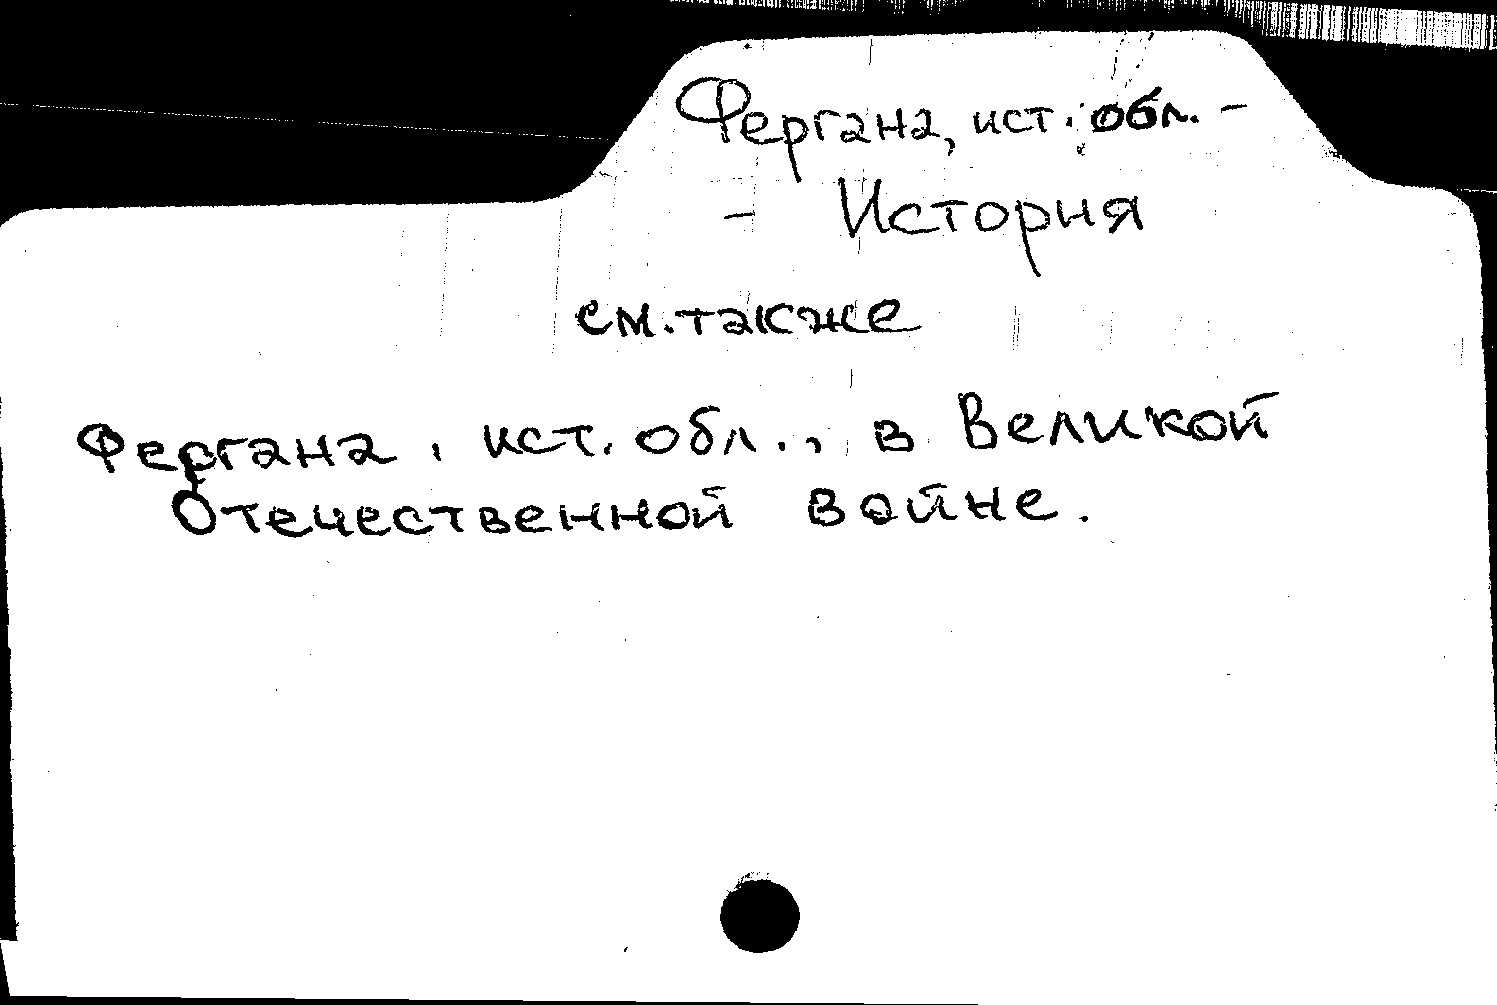 Фергана, ист. обл. -
- История
см. также
Фергана, ист. обл., в Великой
Отечественной войне.